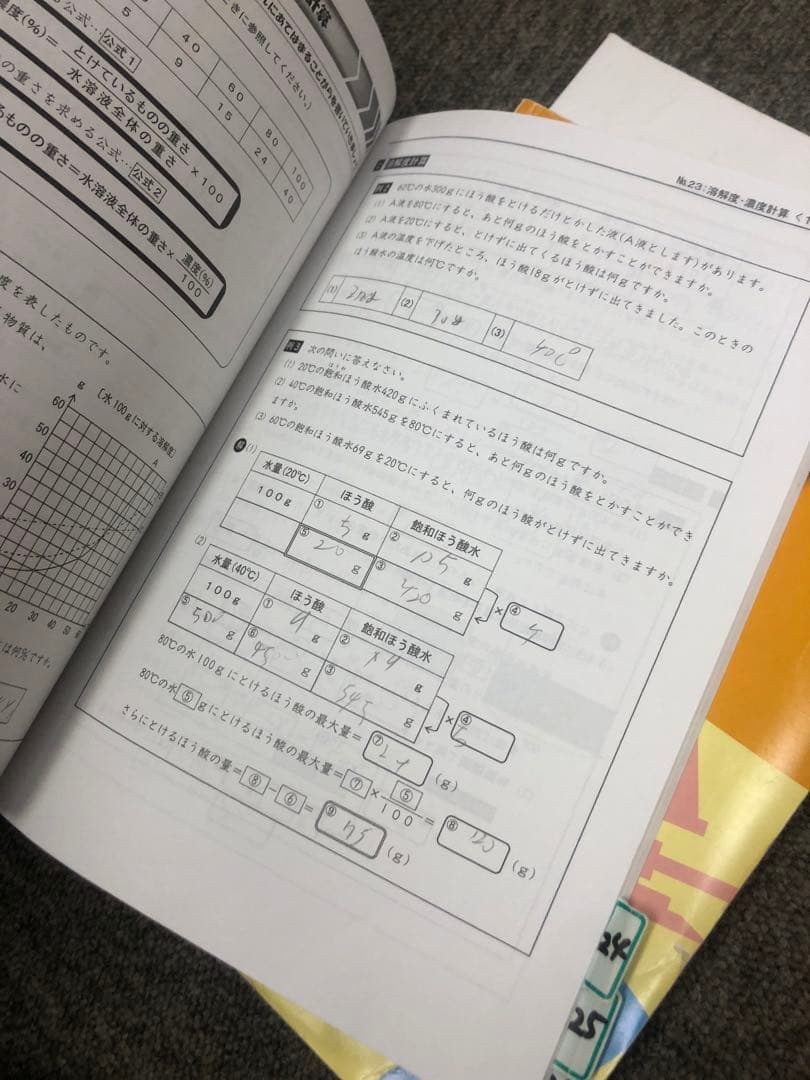 計算
れにあてはまることがらを書いていきましょう
きに参照してください。)
5 40 60 80 100
9 15 24 40
る公式…公式1
濃度(%)=とけているものの重さ/水溶液全体の重さ×100
の重さを求める公式…公式2
るものの重さ=水溶液全体の重さ×濃度(%)/100
度を表したものです。
物質は、
水に
g
〔水100gに対する溶解度〕
60
50
40
30
A
B
20 30 40 50
とは何%ですか。
溶解度計算
№23:溶解度・濃度計算
例2 60℃の水300gにほう酸をとけるだけとかした液(A液とします)があります。
(1) A液を80℃にすると、あと何gのほう酸をとかすことができますか。
(2) A液を20℃にすると、とけずに出てくるほう酸は何gですか。
(3) A液の温度を下げたところ、ほう酸18gがとけずに出てきました。このときの
ほう酸水の温度は何℃ですか。
(1) (2) 30g (3) 40℃
例3 次の問いに答えなさい。
(1) 20℃の飽和ほう酸水420gにふくまれているほう酸は何gですか。
ほうわ
(2) 40℃の飽和ほう酸水545gを80℃にすると、あと何gのほう酸をとかすことができ
ますか。
(3) 60℃の飽和ほう酸水69gを20℃にすると、何gのほう酸がとけずに出てきますか。
(1)
水量(20℃) ほう酸 飽和ほう酸水
100g ① 5 g ② 105 g
⑤ 20 g ③ 420 g × ④ 4
(2)
水量(40℃) ほう酸 飽和ほう酸水
100g ① 9 g ② g
⑤ 500 g ⑥ 45 g ③ 545 g × ④ 5
80℃の水100gにとけるほう酸の最大量=⑦ 24 (g)
80℃の水⑤gにとけるほう酸の最大量=⑦×⑤/100=⑧ 120 (g)
さらにとけるほう酸の量=⑧-⑥=⑨ 75 (g)
24
25